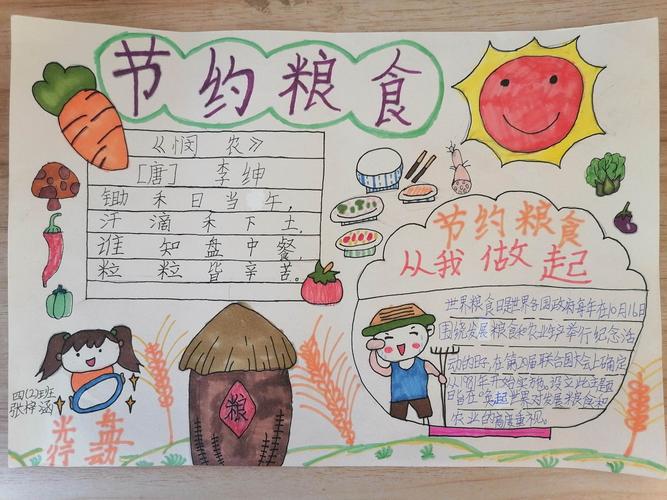 节约粮食
《悯农》
[唐] 李绅
锄禾日当午,
汗滴禾下土,
谁知盘中餐,
粒粒皆辛苦。
节约粮食
从我做起
世界粮食日是世界各国政府每年在10月16日
围绕发展粮食和农业
举行纪念活
动的日子,在第20届联合国大会上确定
从1981年开始实施。设立此主题
日旨在唤起世界对发展粮食和
农业的高度重视。
粮
四(2)班
张梓涵
光盘
行动